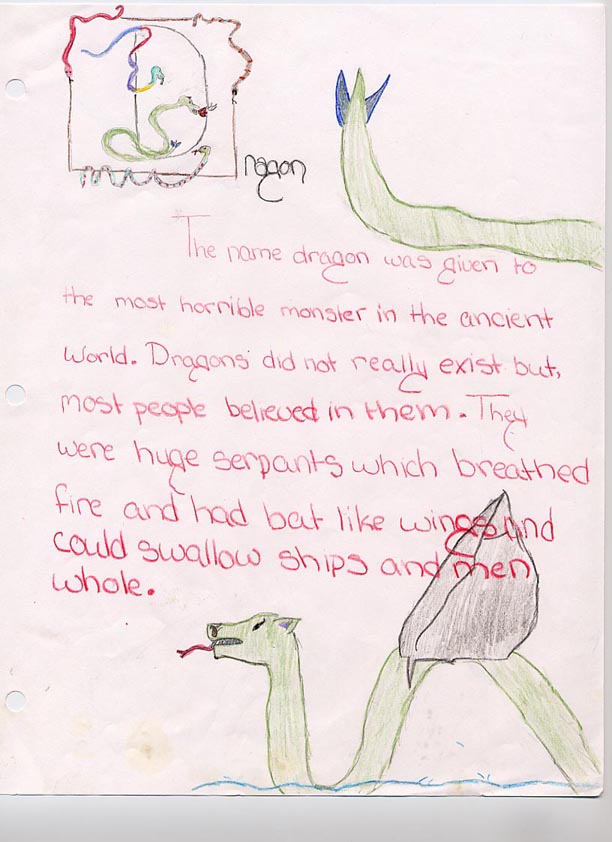 Dragon
The name dragon was given to
the most horrible monster in the ancient
world. Dragons did not really exist but,
most people believed in them. They
were huge serpants which breathed
fire and had bat like wings and
could swallow ships and men
whole.